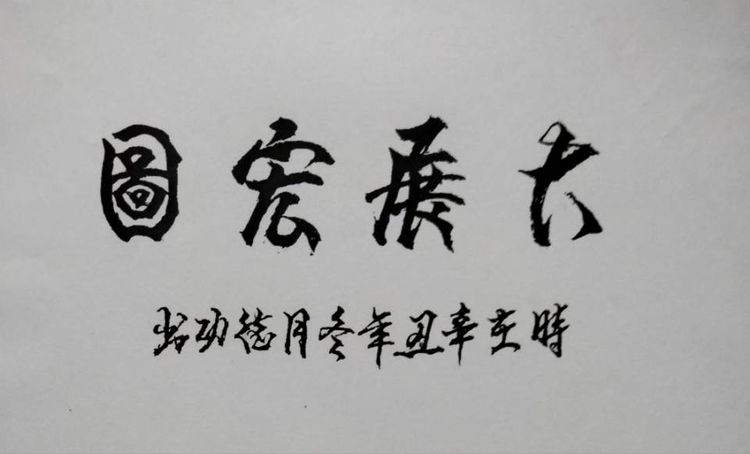 大展宏圖
時在辛丑年冬月德功书